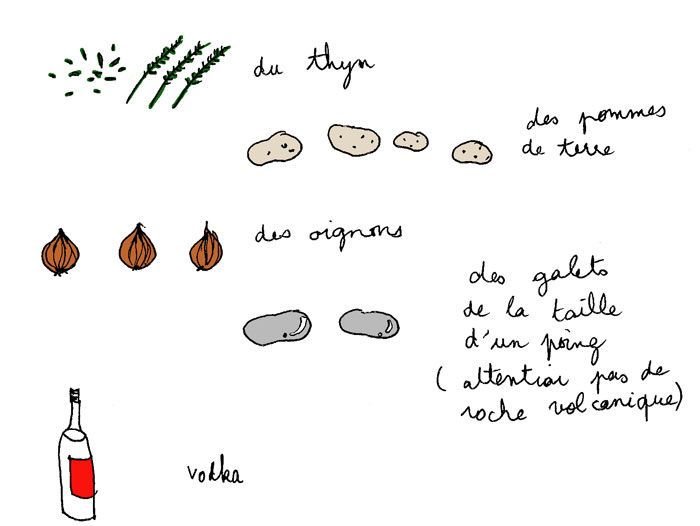 du thym
des pommes
de terre
des oignons
des galets
de la taille
d'un poing
(attention pas de
roche volcanique)
vodka